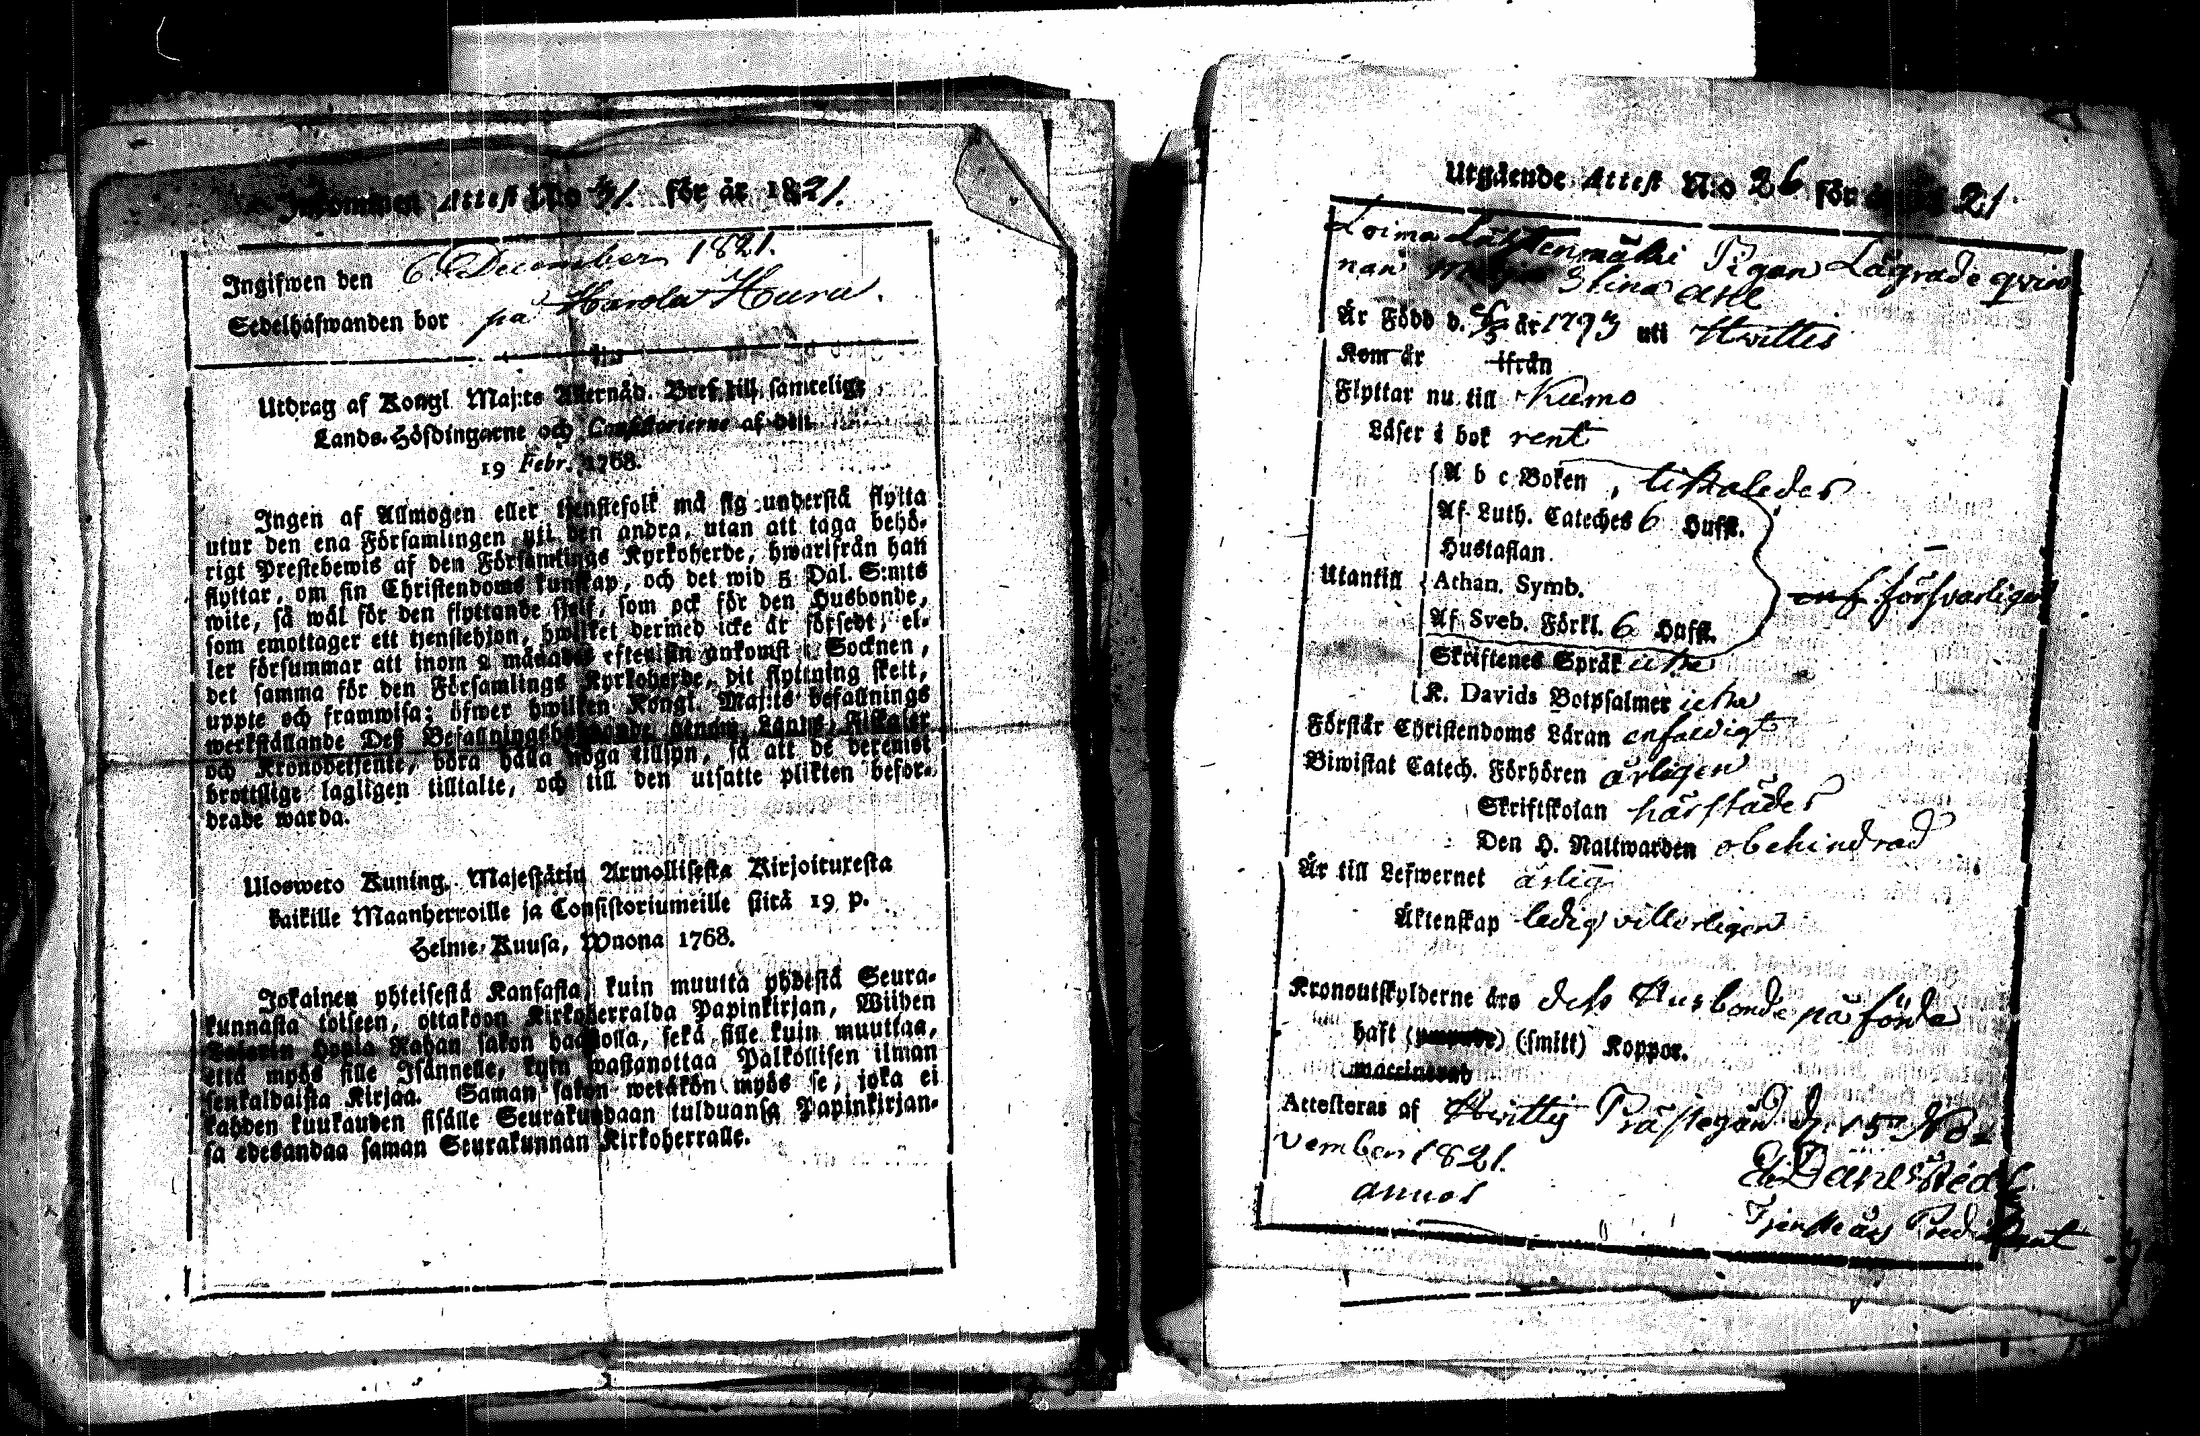 Inkommen Attest No 41. för år 1821.
Ingifwen den 6. December 1821.
Sedelhafwanden bor på Harola Huru.
Utdrag af Kongl. Maj:ts Allernåd. Bref till samtelige
Lands-Höfdingarne och Consistorierne af den
19 Febr. 1768.
Ingen af Allmogen eller tjenstefolk må sig understå flytta
utur den ena Församlingen til den andra, utan att taga behö-
rigt Prestebewis af den Församlings Kyrkoherde, hwarifrån han
flyttar, om sin Christendoms kunskap, och det wid 5 Dal. S:mts
wite, så wäl för den flyttande sjelf, som ock för den Husbonde,
som emottager ett tjenstehjon, hwilket dermed icke är försedt; el-
ler försummar att inom 2 månader efter sin ankomst i Socknen,
det samma för den Församlings Kyrkoherde, dit flyttning skett,
uppte och framwisa; öfwer hwilken Kongl. Maj:ts befallnings
werkställande Deß Befallningshafwande genom Lands-Fiskaler
och Kronobetjente, böra hålla noga tillsyn, så att de deremot
brottslige lagligen tilltalte, och till den utsatte plikten befor-
drade warda.
Ulosweto Kuning. Majestätin Armollisesta Kirjoituxesta
kaikille Maanherroille ja Consistoriumeille siitä 19 p.
Helme-Kuusa, Wuona 1768.
Jokainen yhteisestä Kansasta, kuin muutta yhdestä Seura-
kunnasta toiseen, ottakoon Kirkoherralda Papinkirjan, Wiiden
Talarin Hopia Rahan sakon haastolla, sekä sille kuin muuttaa,
että myös sille Isännelle, kuin wastanottaa Palkollisen ilman
senkaldaista Kirjaa. Saman sakon wetäkön myös se, joka ei
kahden kuukauden sisälle Seurakundaan tulduansa Papinkirjan-
sa edesandaa saman Seurakunnan Kirkoherralle.
Utgående Attest N:o 26 för år 1821
Loima Pigan Lägrade qvin
nan Stina
Är Född d. år 1793 uti Hvittis
Kom år ifrån
Flyttar nu till Kumo
Läser i bok rent
A b c Boken, likaledes
Af Luth. Cateches 6 Hufst.
Hustaflan.
Utantill Athan. Symb. försvarligen
Af Sveb. Förkl. 6 Hufst.
Skriftenes Språk icke
K. Davids Botpsalmer icke
Förstår Christendoms Läran enfaldigt
Biwistat Catech. Förhören årligen
Skriftskolan härstädes
Den H. Nattwarden obehindrad
Är till Lefwernet ärlig
Äktenskap ledig villerligen
Kronoutskylderne äro dess Husbonde påförde
haft (smitt) Koppor.
waccinerad
Attesteras af Hvittis Prästegård d. 15 No
vember 1821.